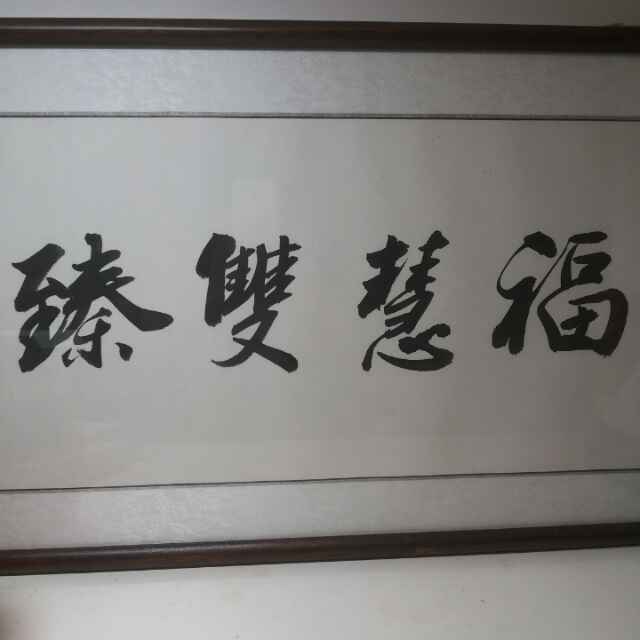 福慧雙臻